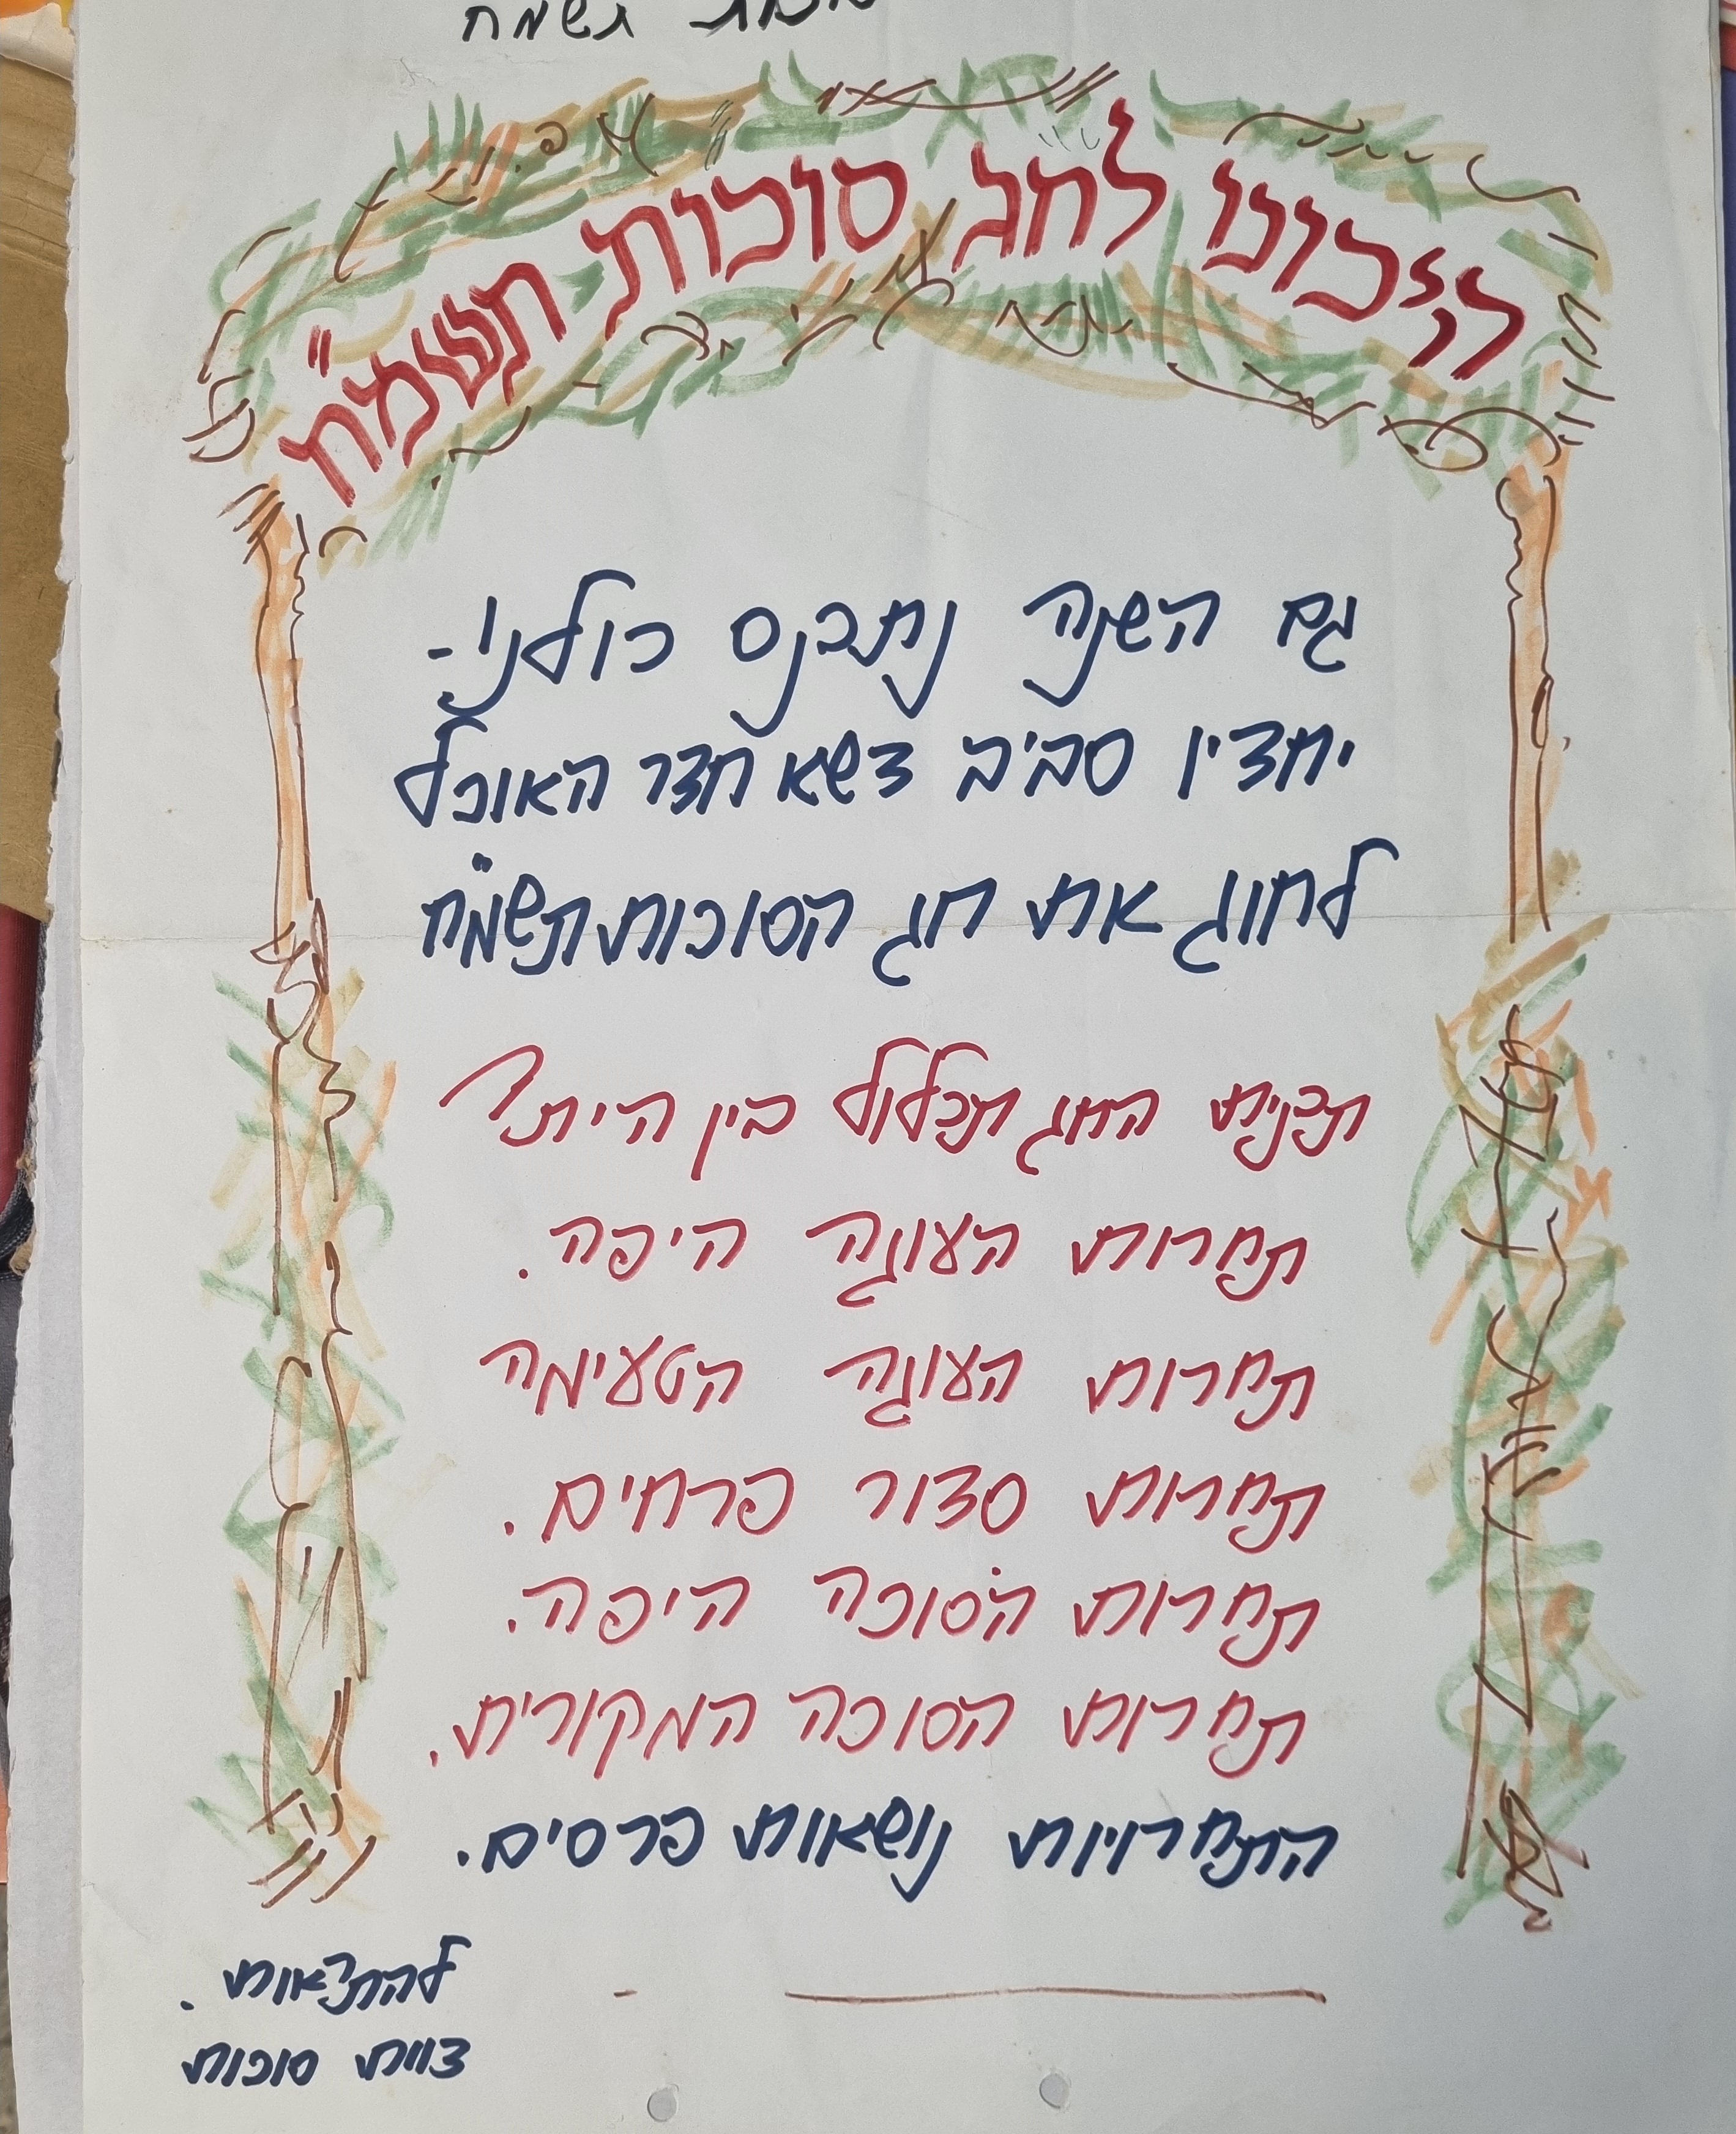 תשמח
היכונו לחג סוכות תשמ"ח
גם השנה נתכנס כולנו -
יחדיו סביב דשא חדר האוכל
לחוג את חג הסוכות תשמ"ח
תכנית החג תכלול בין הית'
תחרות העוגה היפה.
תחרות העוגה הטעימה
תחרות סדור פרחים.
תחרות הסוכה היפה.
תחרות הסוכה המקורית.
התחרויות נושאות פרסים.
להתראות.
צוות סוכות